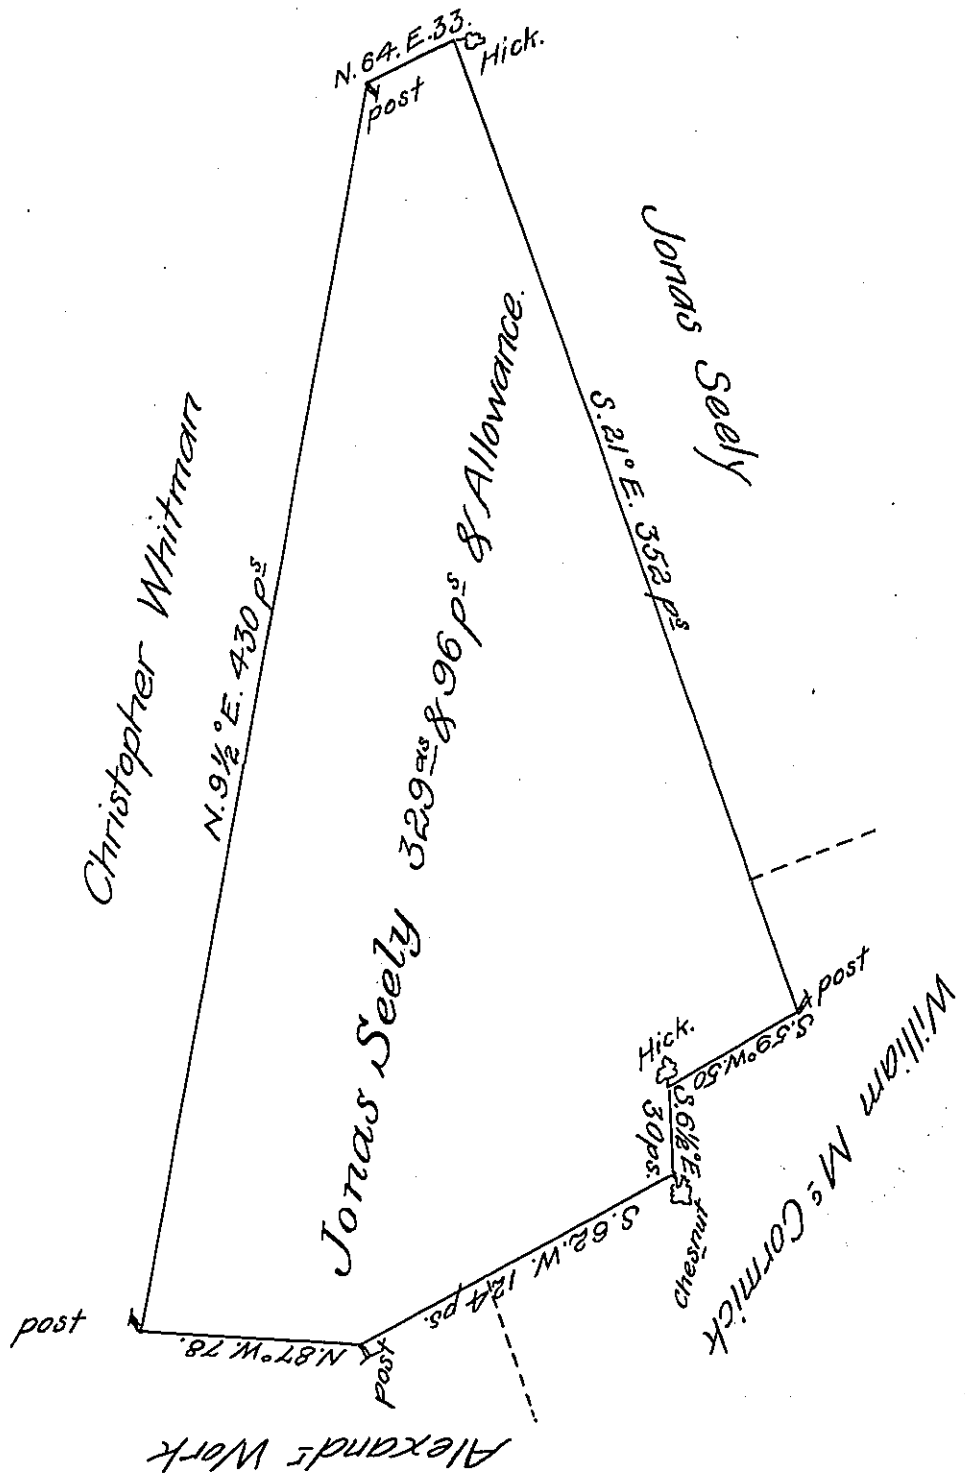 N. 64. E. 33.
Hick.
post
Jonas Seely
S. 21° E. 352 pˢ
Christopher Whitman
N. 9½° E. 430 pˢ
Jonas Seely 329ᵃˢ & 96 pˢ & Allowance.
post
S. 59° W. 50
Hick.
S. 6½° E.
30 ps.
Chesnut
William Mᶜ Cormick
S. 62. W. 124 ps.
post
N. 87° W. 78.
post
Alexandʳ Work